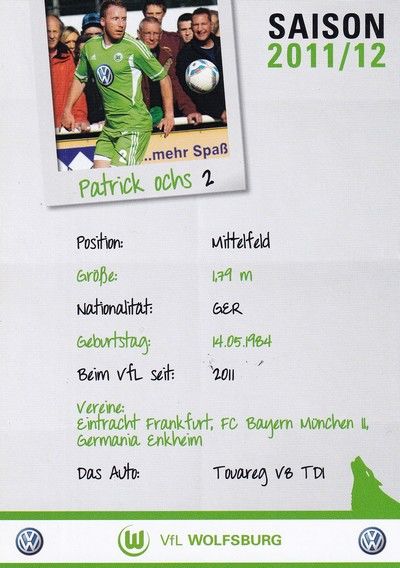 SAISON
2011/12
...mehr Spaß
Patrick Ochs 2
Position: Mittelfeld
Größe: 1,79 m
Nationalität: GER
Geburtstag: 14.05.1984
Beim VfL seit: 2011
Vereine:
Eintracht Frankfurt, FC Bayern München II,
Germania Enkheim
Das Auto: Touareg V8 TDI
VfL WOLFSBURG